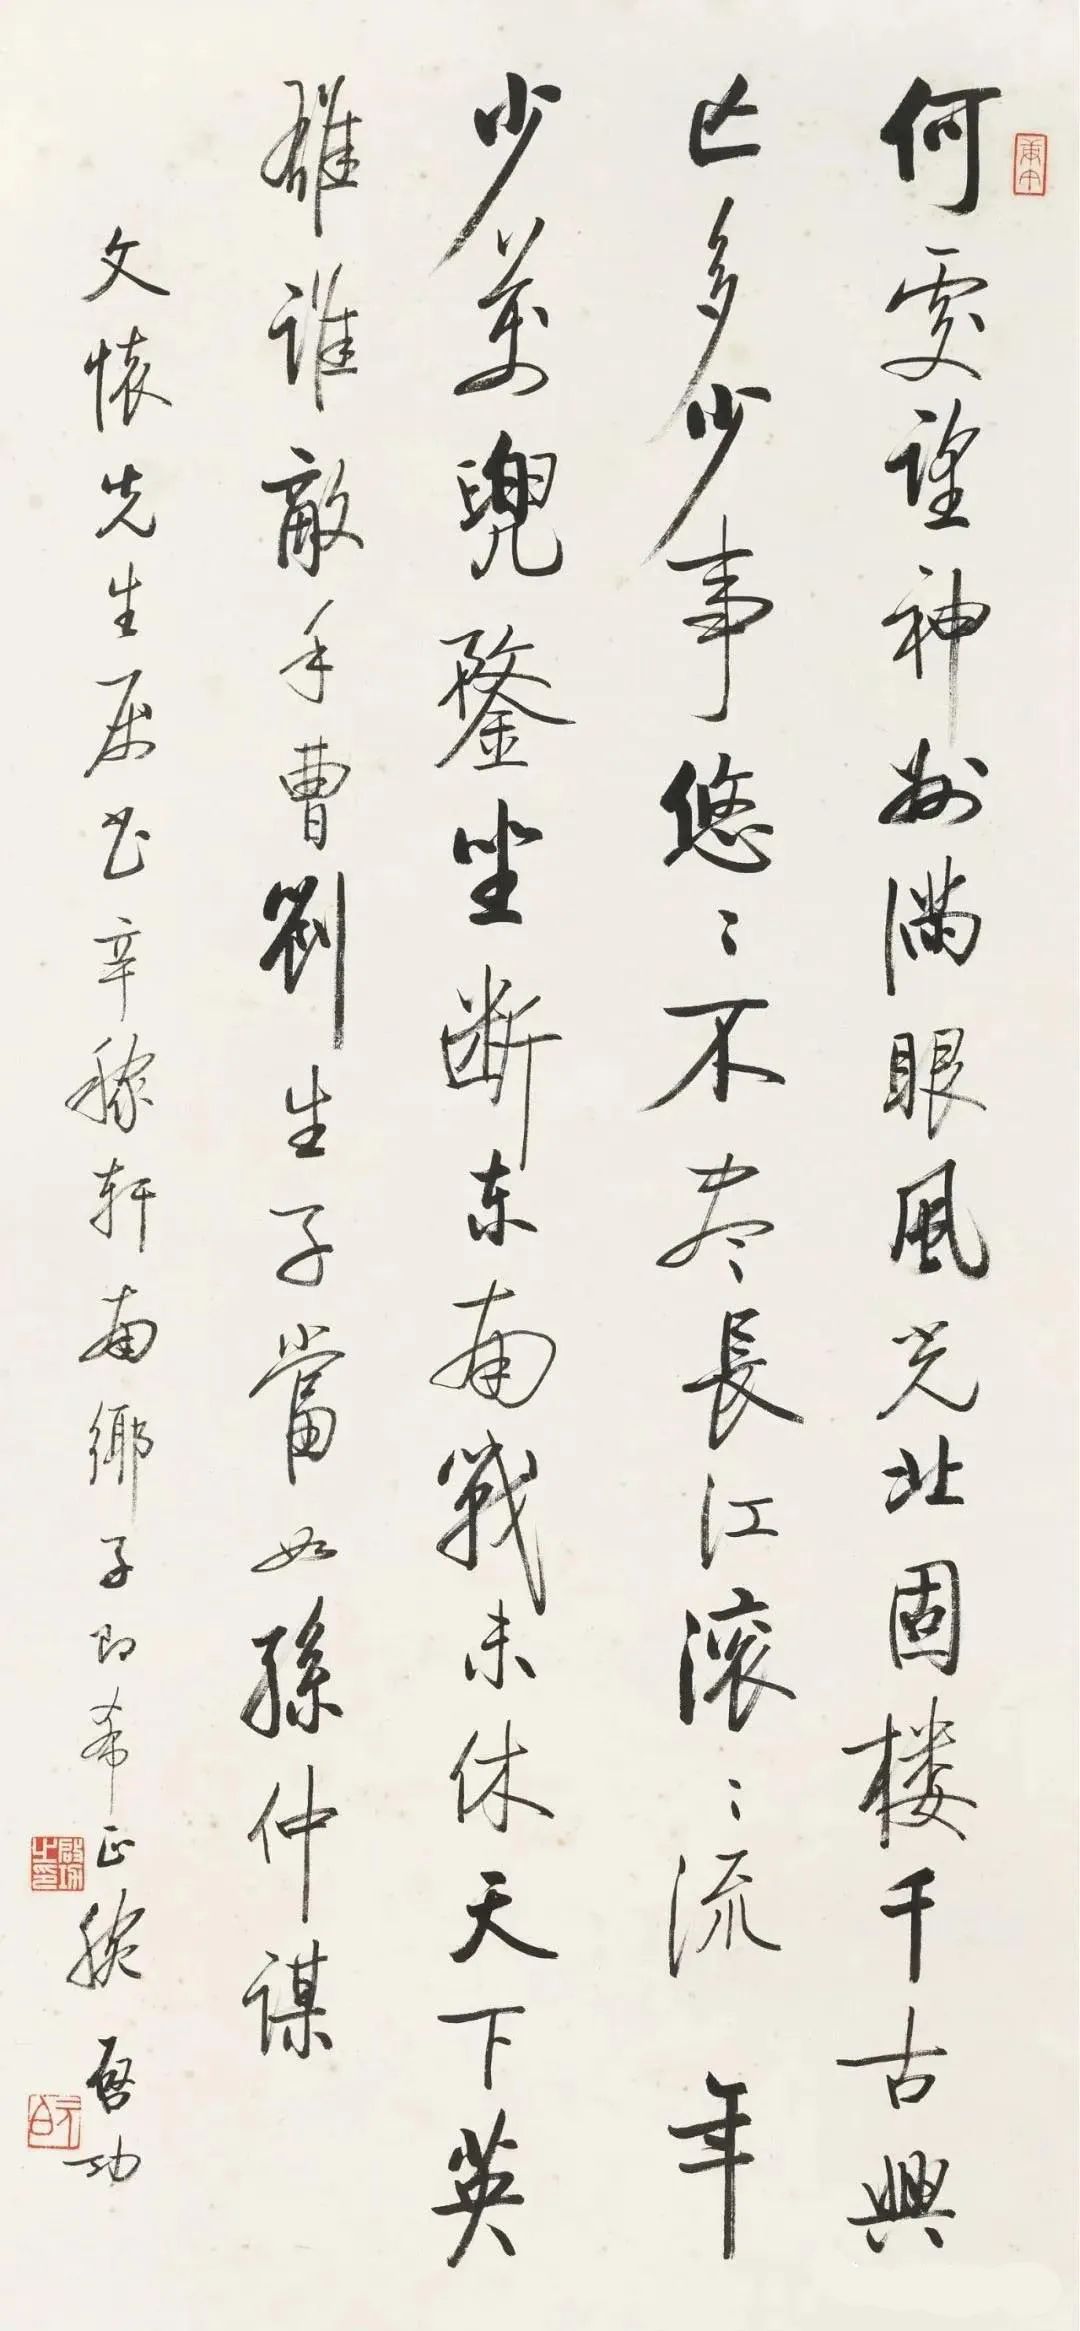 何處望神州滿眼風光北固楼千古興
亡多少事悠〻不盡長江滾〻流 年
少萬兜鍪坐斷東南戰未休天下英
雄誰敵手曹劉生子當如孫仲謀
文懷先生属書辛稼軒南鄉子即希正腕 启功
啟功之印
元白